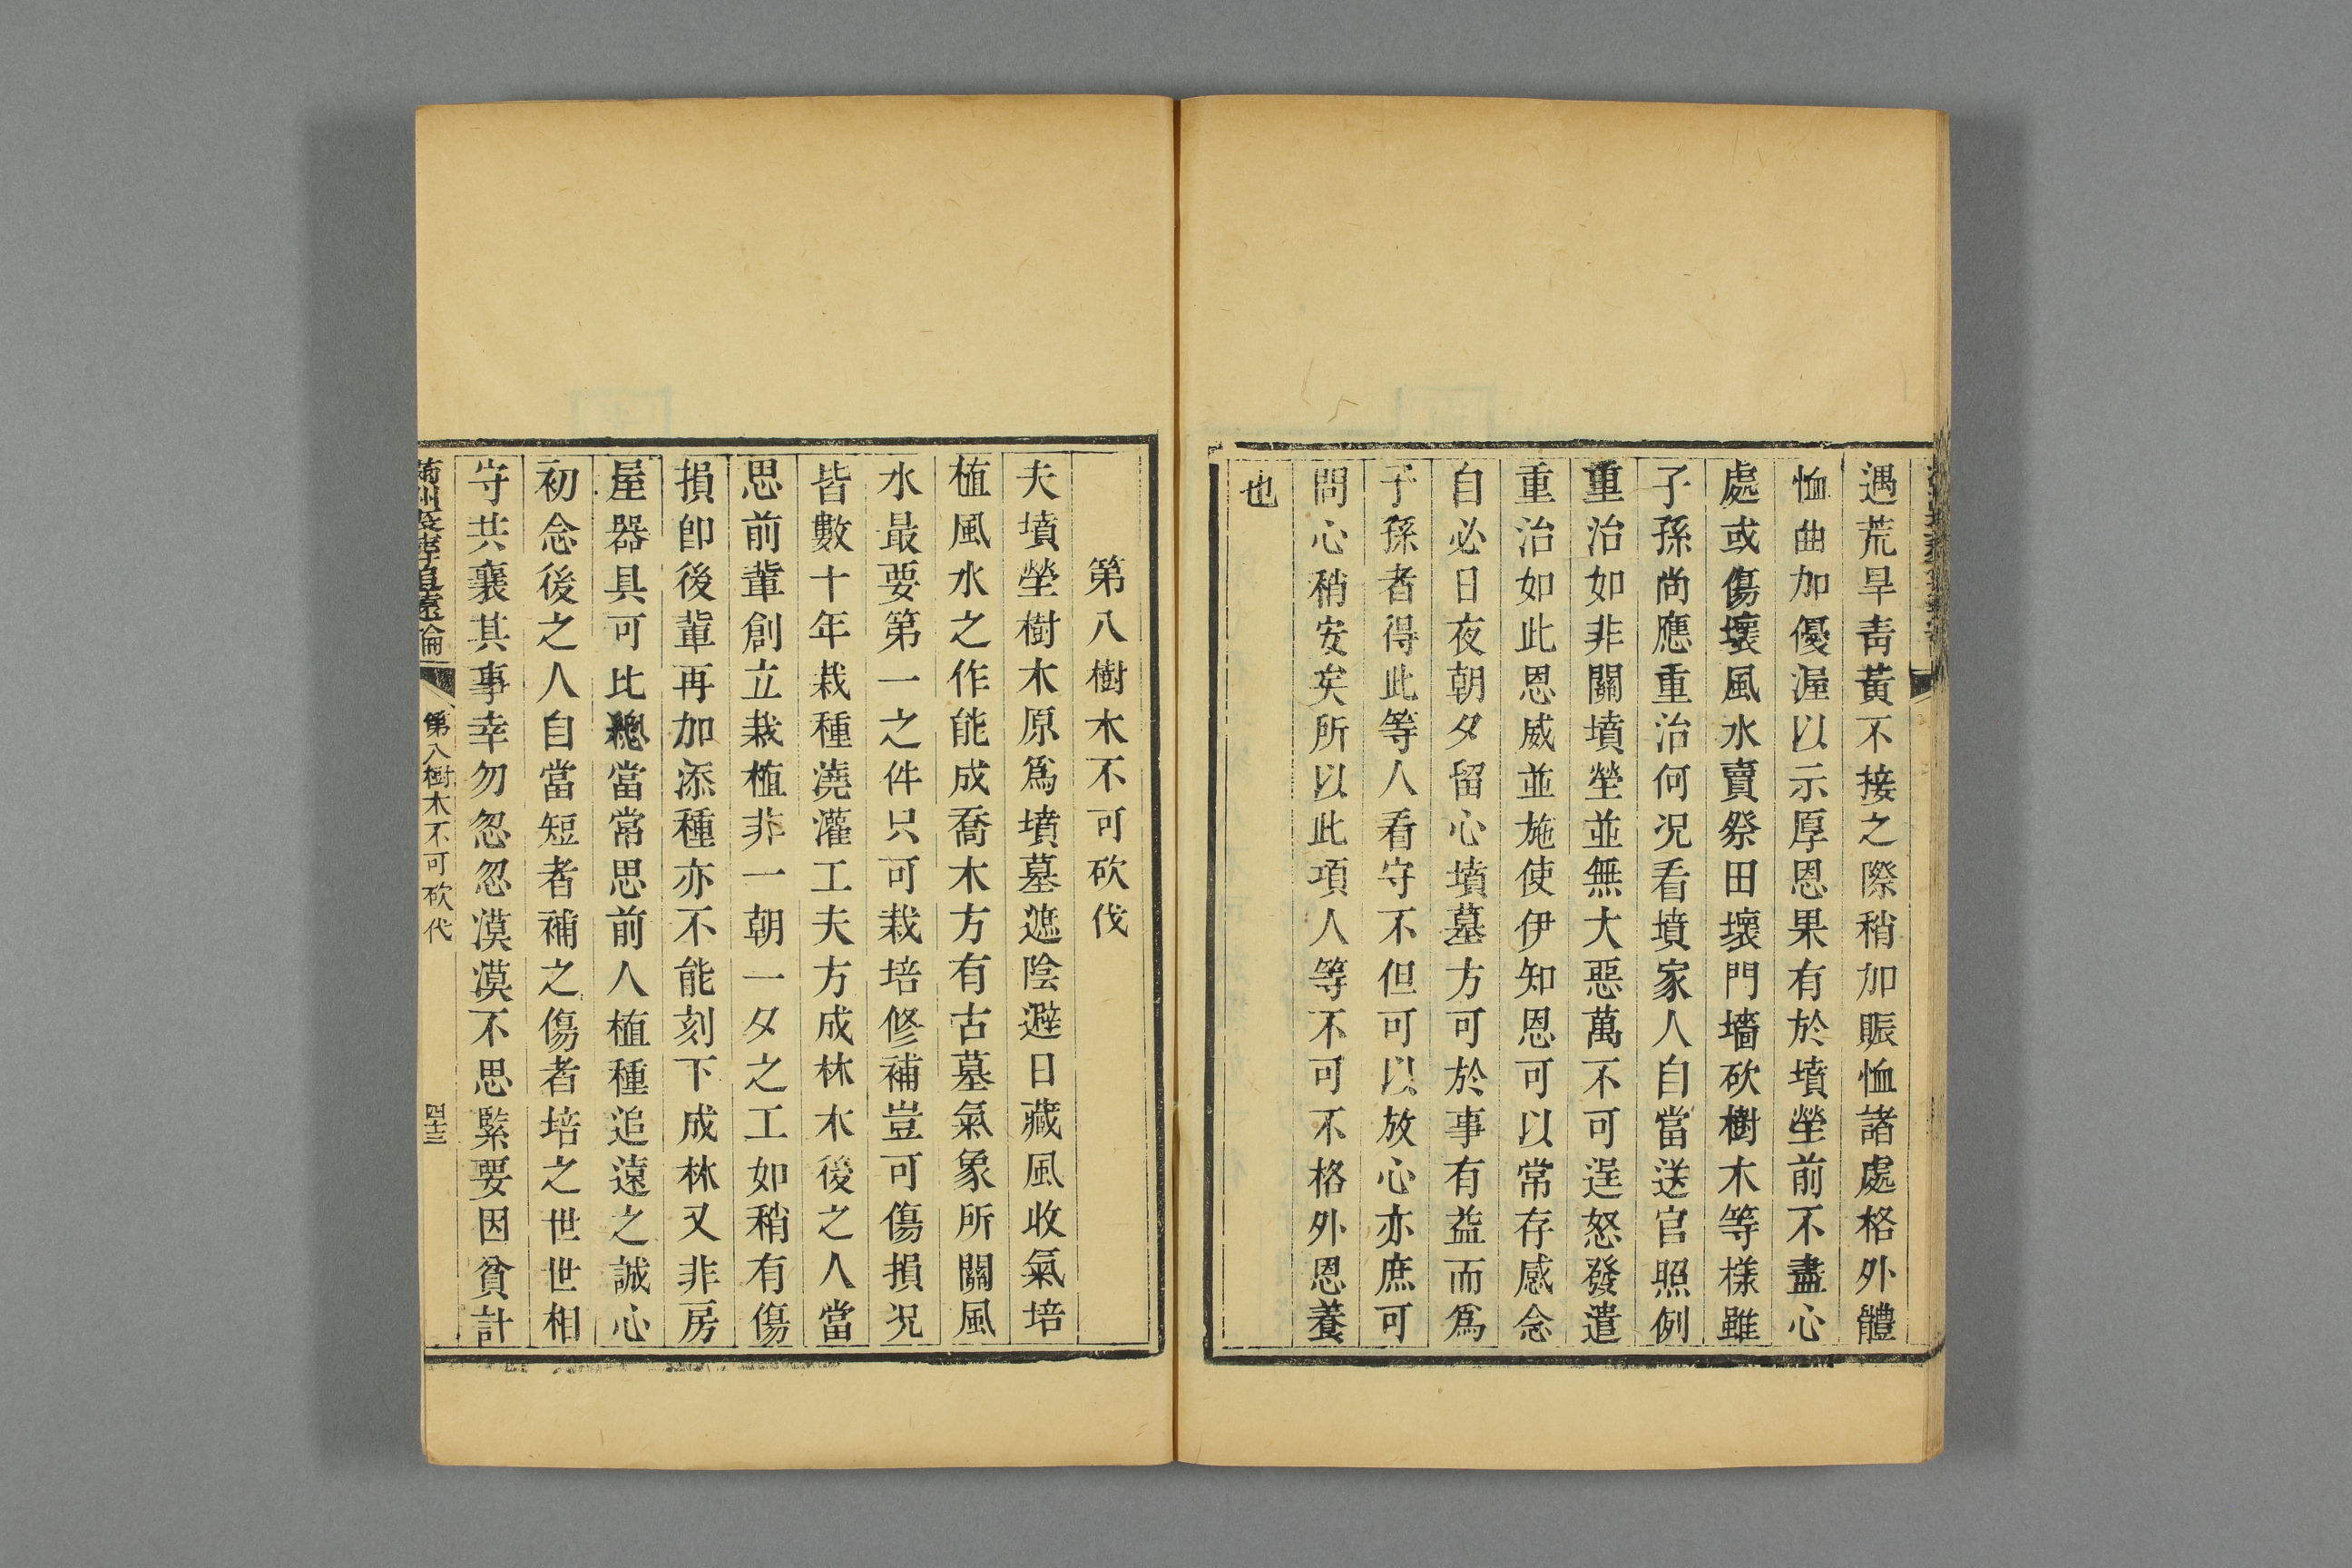 遇荒旱靑黃不接之際稍加賑恤諸處格外體
恤曲加優渥以示厚恩果有於墳塋前不盡心
處或傷壞風水賣祭田壞門墻砍樹木等樣雖
子孫尚應重治何况看墳家人自當送官照例
重治如非關墳塋並無大惡萬不可逞怒發遣
重治如此恩威並施使伊知恩可以常存感念
自必日夜朝夕留心墳墓方可於事有益而爲
子孫者得此等人看守不但可以放心亦庶可
問心稍安矣所以此項人等不可不格外恩養
也
第八樹木不可砍伐
夫墳塋樹木原爲墳墓遮陰避日藏風收氣培
植風水之作能成喬木方有古墓氣象所關風
水最要第一之件只可栽培修補豈可傷損况
皆數十年栽種澆灌工夫方成林木後之人當
思前輩創立栽植非一朝一夕之工如稍有傷
損卽後輩再加添種亦不能刻下成林又非房
屋器具可比總當常思前人植種追遠之誠心
初念後之人自當短者補之傷者培之世世相
守共襄其事幸勿忽忽漠漠不思緊要因貧計
追遠論
第八樹木不可砍伐
四十三